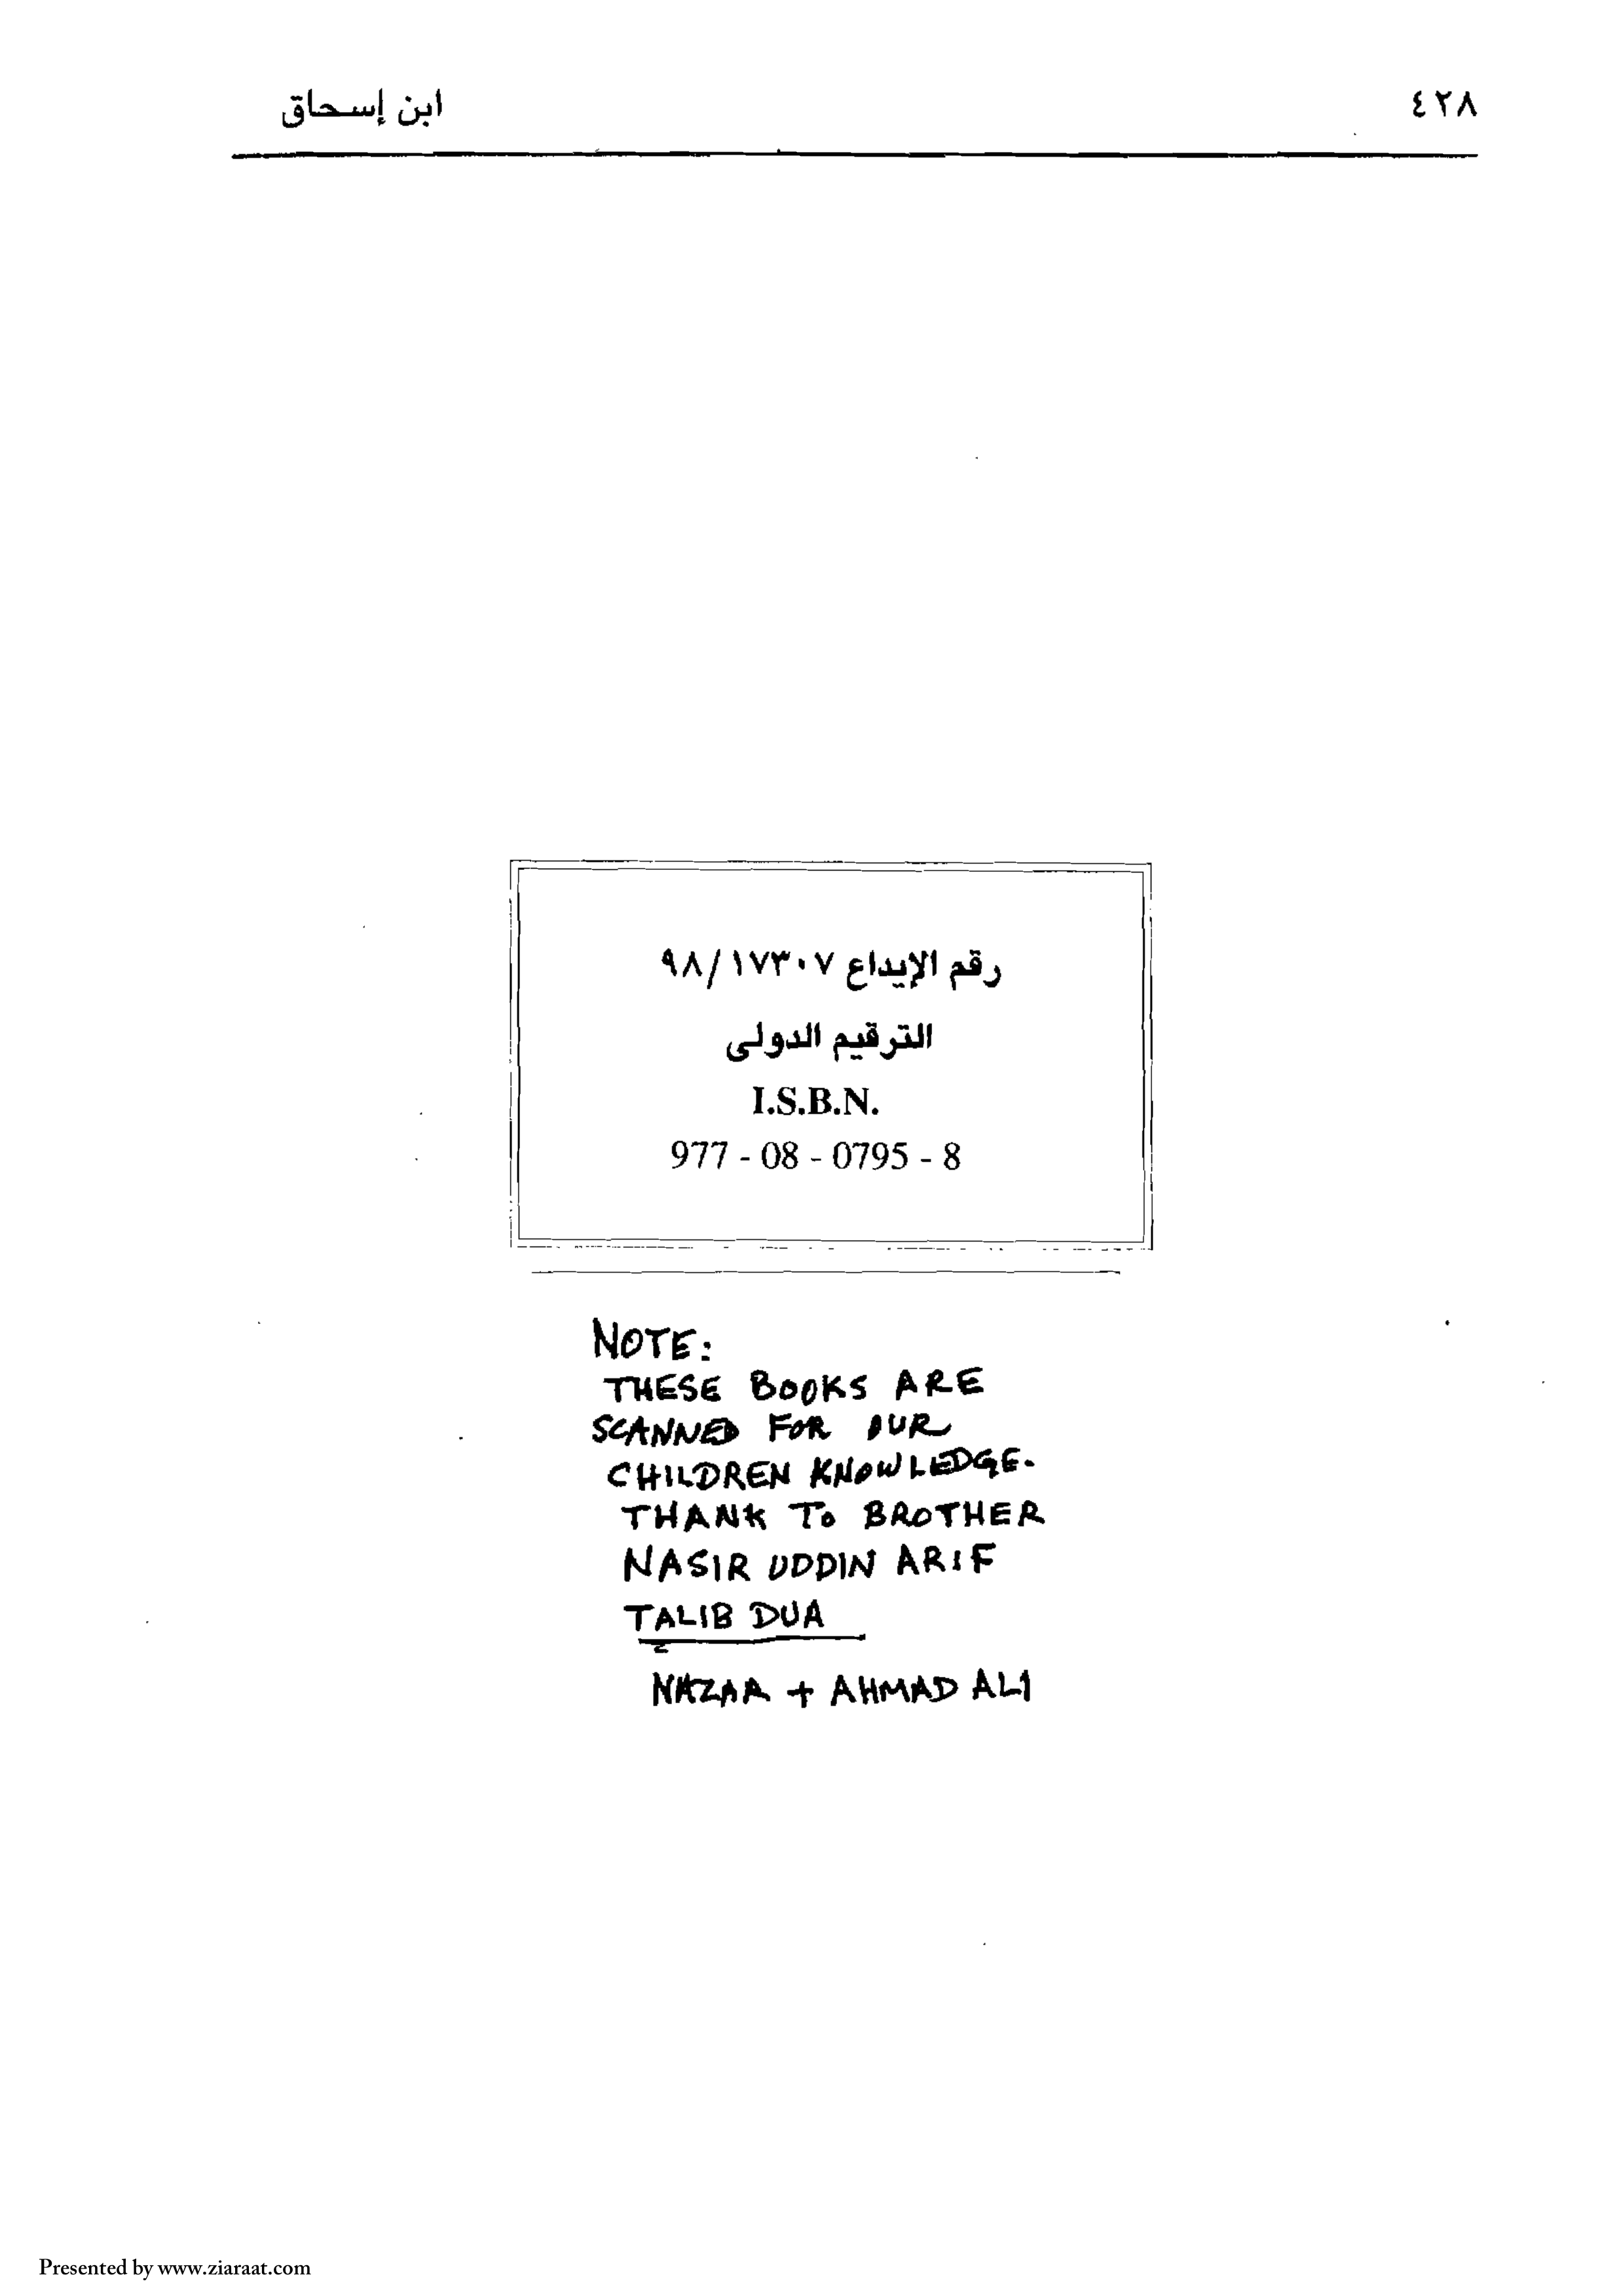 ٤٢٨
ابن إسحاق
رقم الإيداع ٩٨/١٧٣٠٧
الترقيم الدولى
I.S.B.N.
977 - 08 - 0795 - 8
NOTE:
THESE BOOKS ARE
SCANNED FOR OUR
CHILDREN KNOWLEDGE.
THANK TO BROTHER
NASIR UDDIN ARIF
TALIB DUA
NAZAA + AHMAD ALI
Presented by www.ziaraat.com